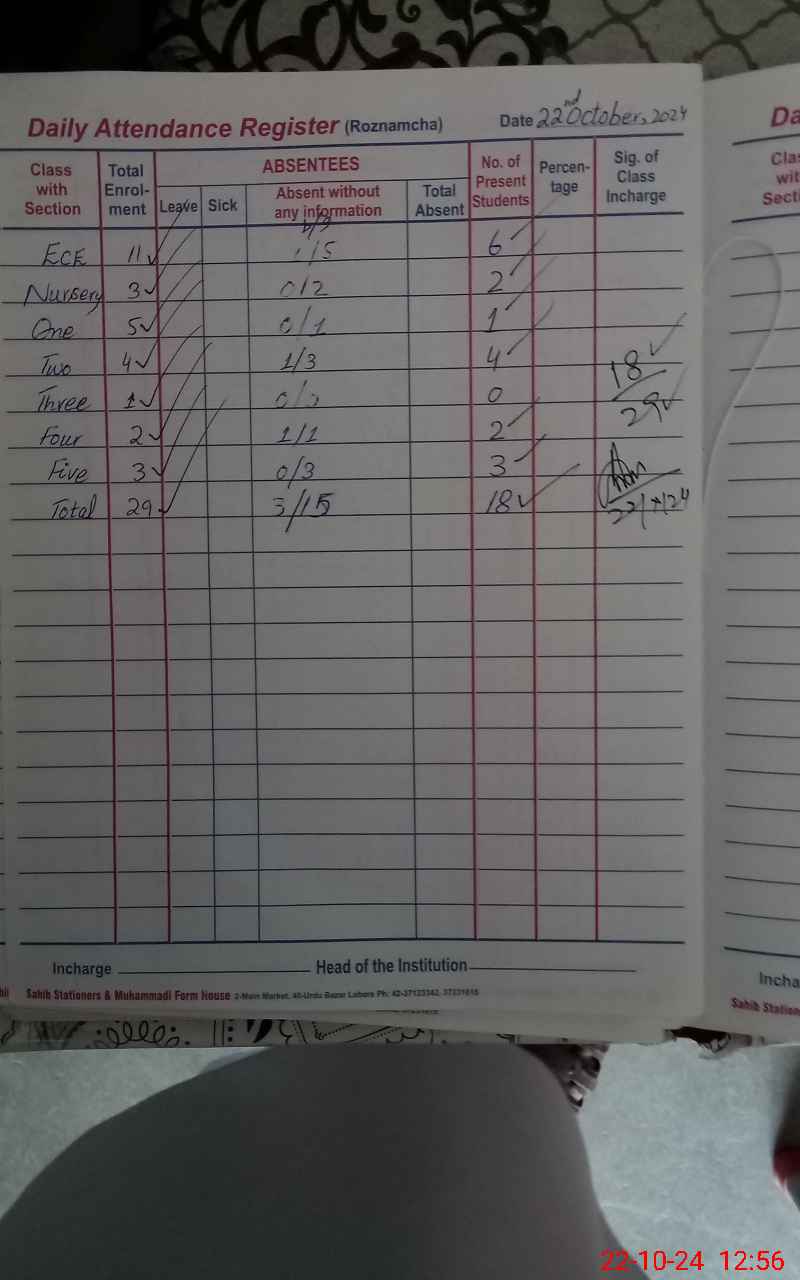 Daily Attendance Register (Roznamcha) Date 22nd October, 2024
Class with Section Total Enrol-ment ABSENTEES Leave Sick Absent without any information Total Absent No. of Present Students Percen-tage Sig. of Class Incharge
b/g
ECE 11 1/5 6
Nursery 3 0/2 2
One 5 0/1 1
Two 4 1/3 4 18
Three 1 0/0 0 29
Four 2 1/1 2
Five 3 0/3 3
Total 29 3/15 18
Incharge Head of the Institution
Sahib Stationers & Muhammadi Form House 2-Main Market, 40-Urdu Bazar Lahore Ph: 42-37123342, 37231815
Da
Clas
wit
Secti
Incha
Sahib Station
22-10-24 12:56